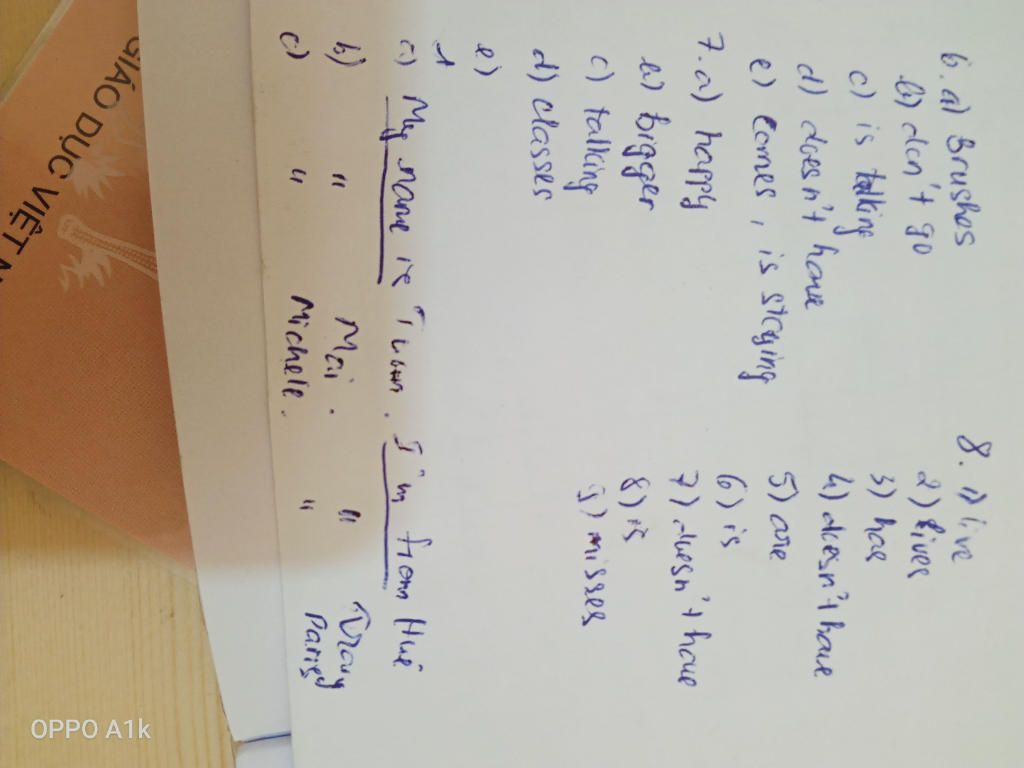 6. a) Brushes
b) don't go
c) is talking
d) doesn't have
e) comes, is staying
7. a) happy
b) bigger
c) talking
d) classes
e)
8. 1) live
2) lives
3) has
4) doesn't have
5) are
6) is
7) doesn't have
8) is
9) misses
1
a) My name is . I'm from Huế
b) " Mai. "
c) " Michele. " Paris
GIÁO DỤC VIỆT N
OPPO A1k